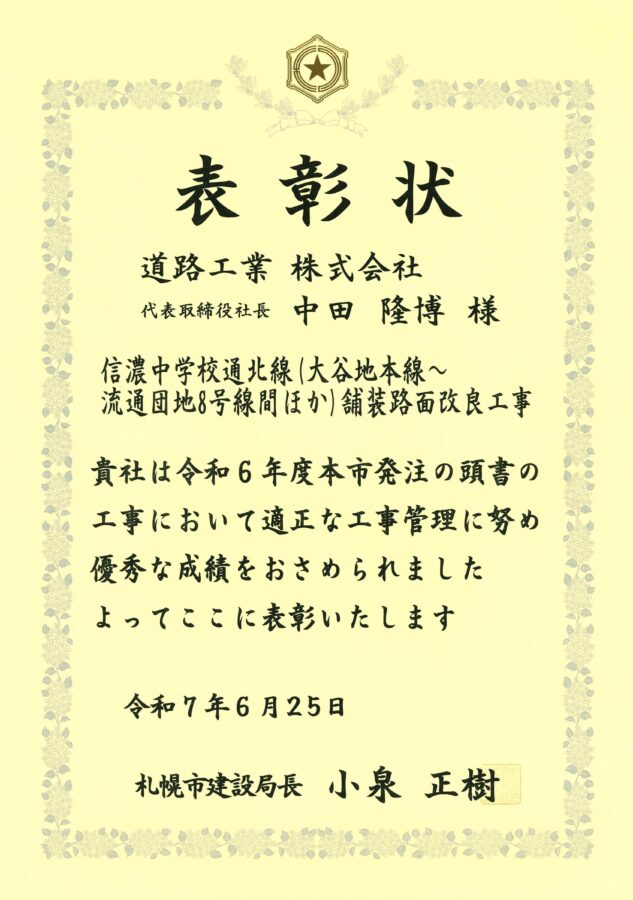 表彰状
道路工業 株式会社
代表取締役社長 中田 隆博 様
信濃中学校通北線(大谷地本線～
流通団地8号線間ほか)舗装路面改良工事
貴社は令和6年度本市発注の頭書の
工事において適正な工事管理に努め
優秀な成績をおさめられました
よってここに表彰いたします
令和7年6月25日
札幌市建設局長 小泉 正樹